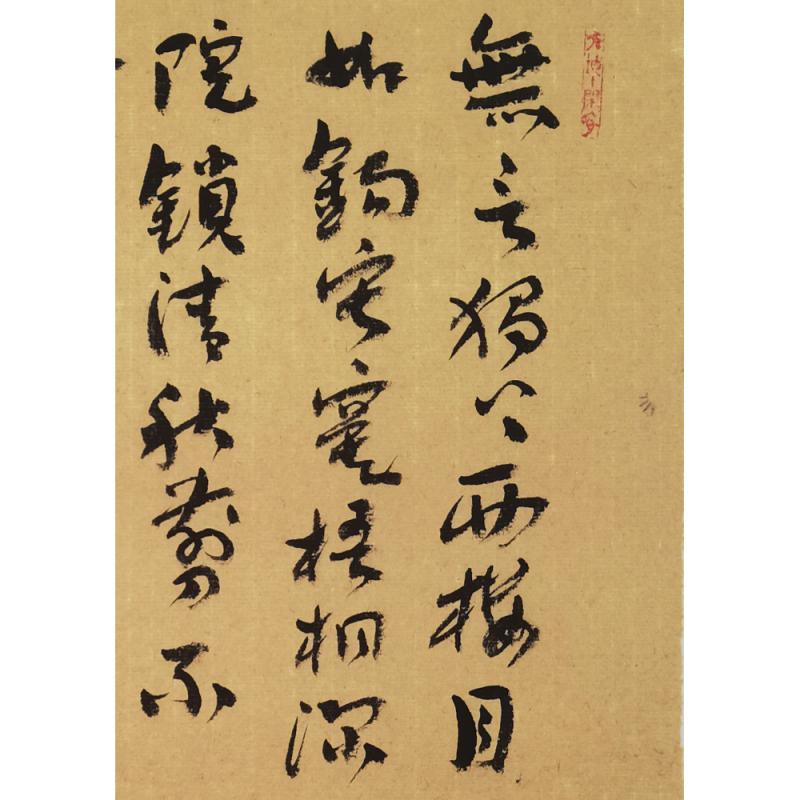 無言獨上西樓月
如鈎寂寞梧桐深
院鎖清秋剪不